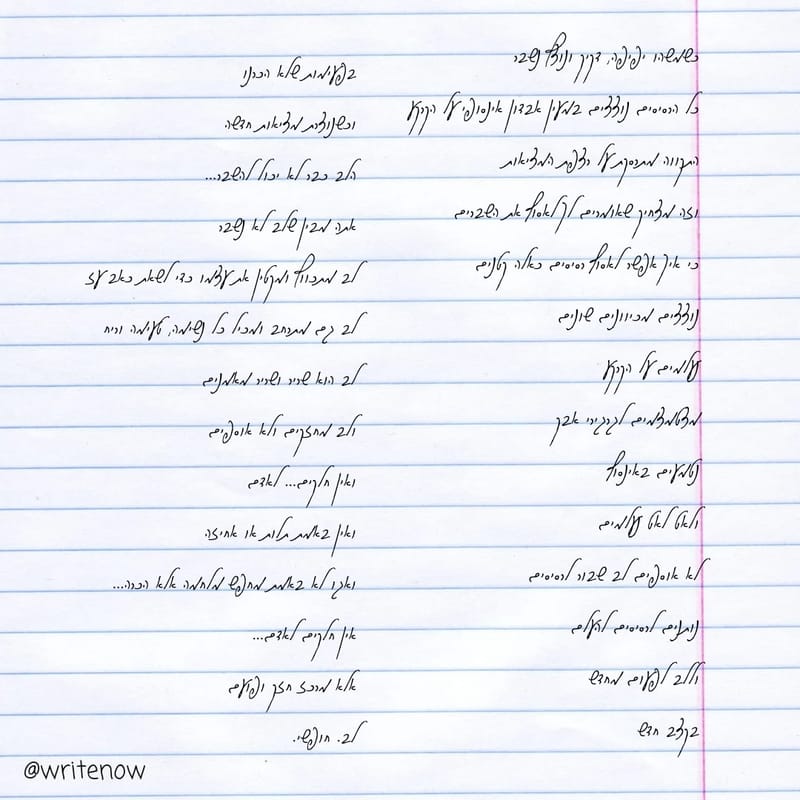 כשמשהו יפיפה, דקיק ונוצץ נשבר
כל הרסיסים נוצצים במעין אבדון אינסופי על הקרקע
התקווה מתרסקת על רצפת המציאות
וזה מצחיק שאומרים לך לאסוף את השברים
כי איך אפשר לאסוף רסיסים כאלה קטנים
נוצצים מכיוונים שונים
נעלמים על הקרקע
מצטמצמים לגרגירי אבק
נטמעים באינסוף
ולאט לאט נעלמים
לא אוספים לב שבור לרסיסים
נותנים לרסיסים להעלם
וללב לפעום מחדש
בקצב חדש
בפעימות שלא הכרנו
וכשנוצרת מציאות חדשה
הלב כבר לא יכול להשבר...
אתה מבין שלב לא נשבר
לב מתכווץ ומקטין את עצמו כדי לשאת כאב עז
לב גם מתרחב ומכיל כל נשימה, טעימה וריח
לב הוא שריר ושריר מאמנים
ולב מחזקים ולא אוספים
ואין חלקים... לאדם
ואין באמת תלות או אחיזה
ואגו לא באמת מחפש מלחמה אלא הכרה...
אין חלקים לאדם...
אלא מרכז חזק ופועם
לב. חופשי.
@writenow